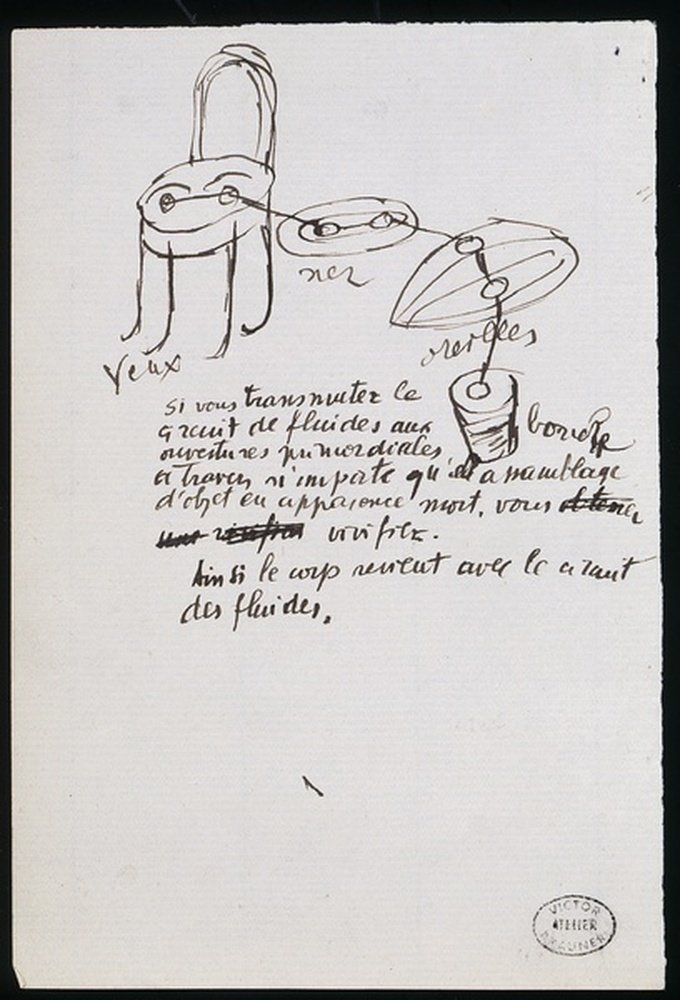 nez
oreilles
Yeux
bouche
Si vous transmutez le
circuit de fluides aux
ouvertures primordiales
à travers n'importe qu'el assamblage
d'objet en apparence mort, vous obtenez
une vivifiez.
Ainsi le corp revient avec le circuit
des fluides.
VICTOR
ATELIER
BRAUNER